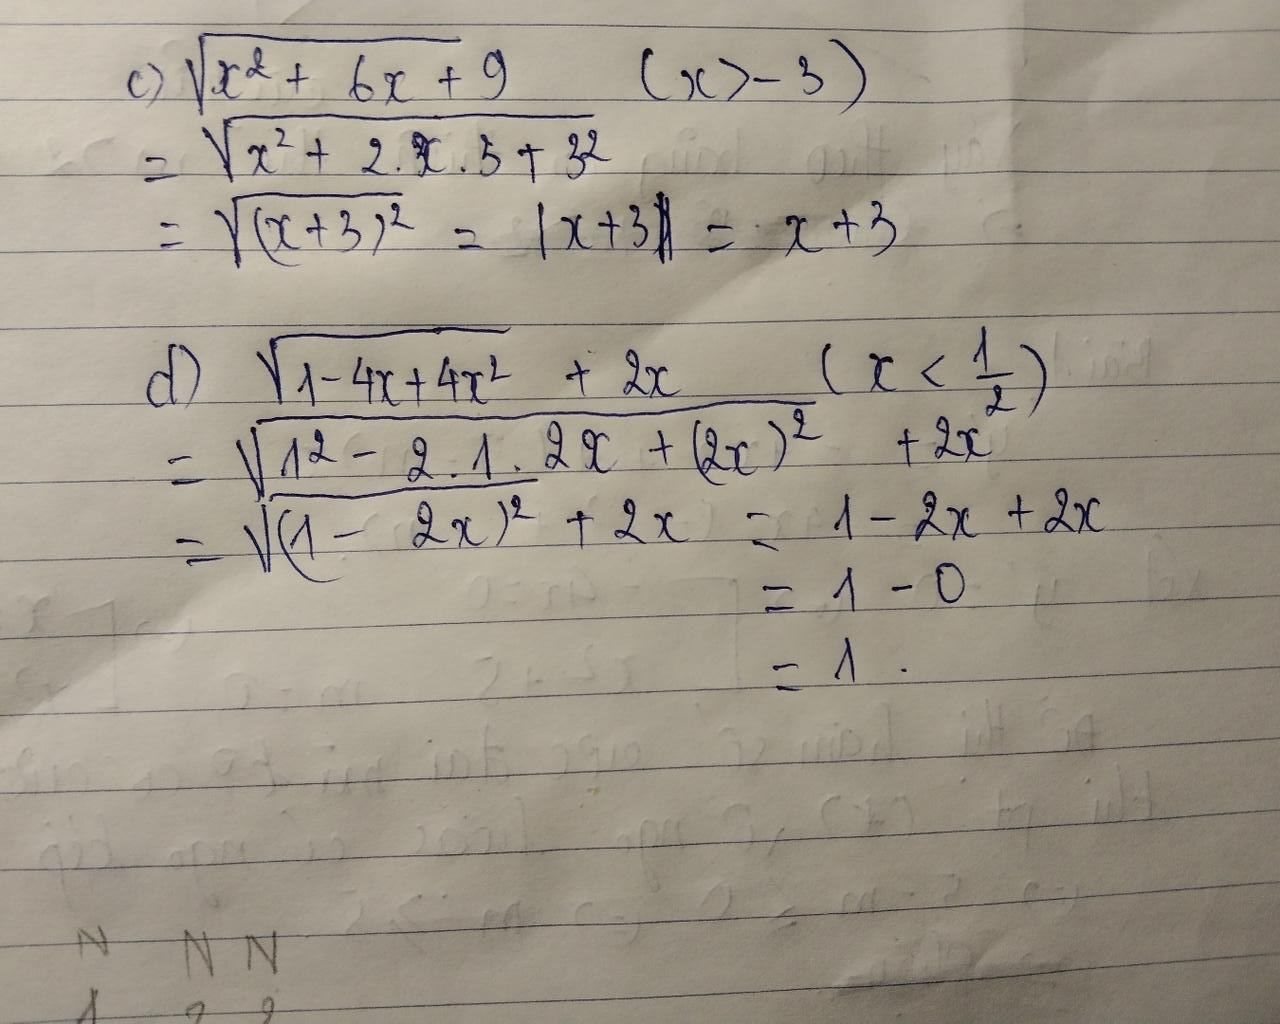 c) √x² + 6x + 9 (x > -3)
= √x² + 2.x.3 + 3²
= √(x+3)² = |x+3| = x+3
d) √1-4x+4x² + 2x (x < 1/2)
= √1² - 2.1.2x + (2x)² + 2x
= √(1 - 2x)² + 2x = 1 - 2x + 2x
= 1 - 0
= 1.
N N N